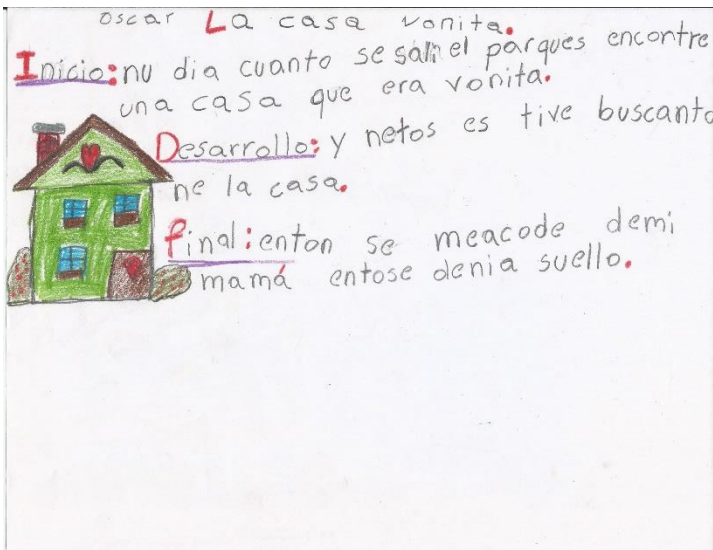 oscar La casa vonita.
Inicio: nu dia cuanto se salinel parques encontre
una casa que era vonita.
Desarrollo: y netos es tive buscanto
ne la casa.
final: enton se meacode demi
mamá entose denia suello.